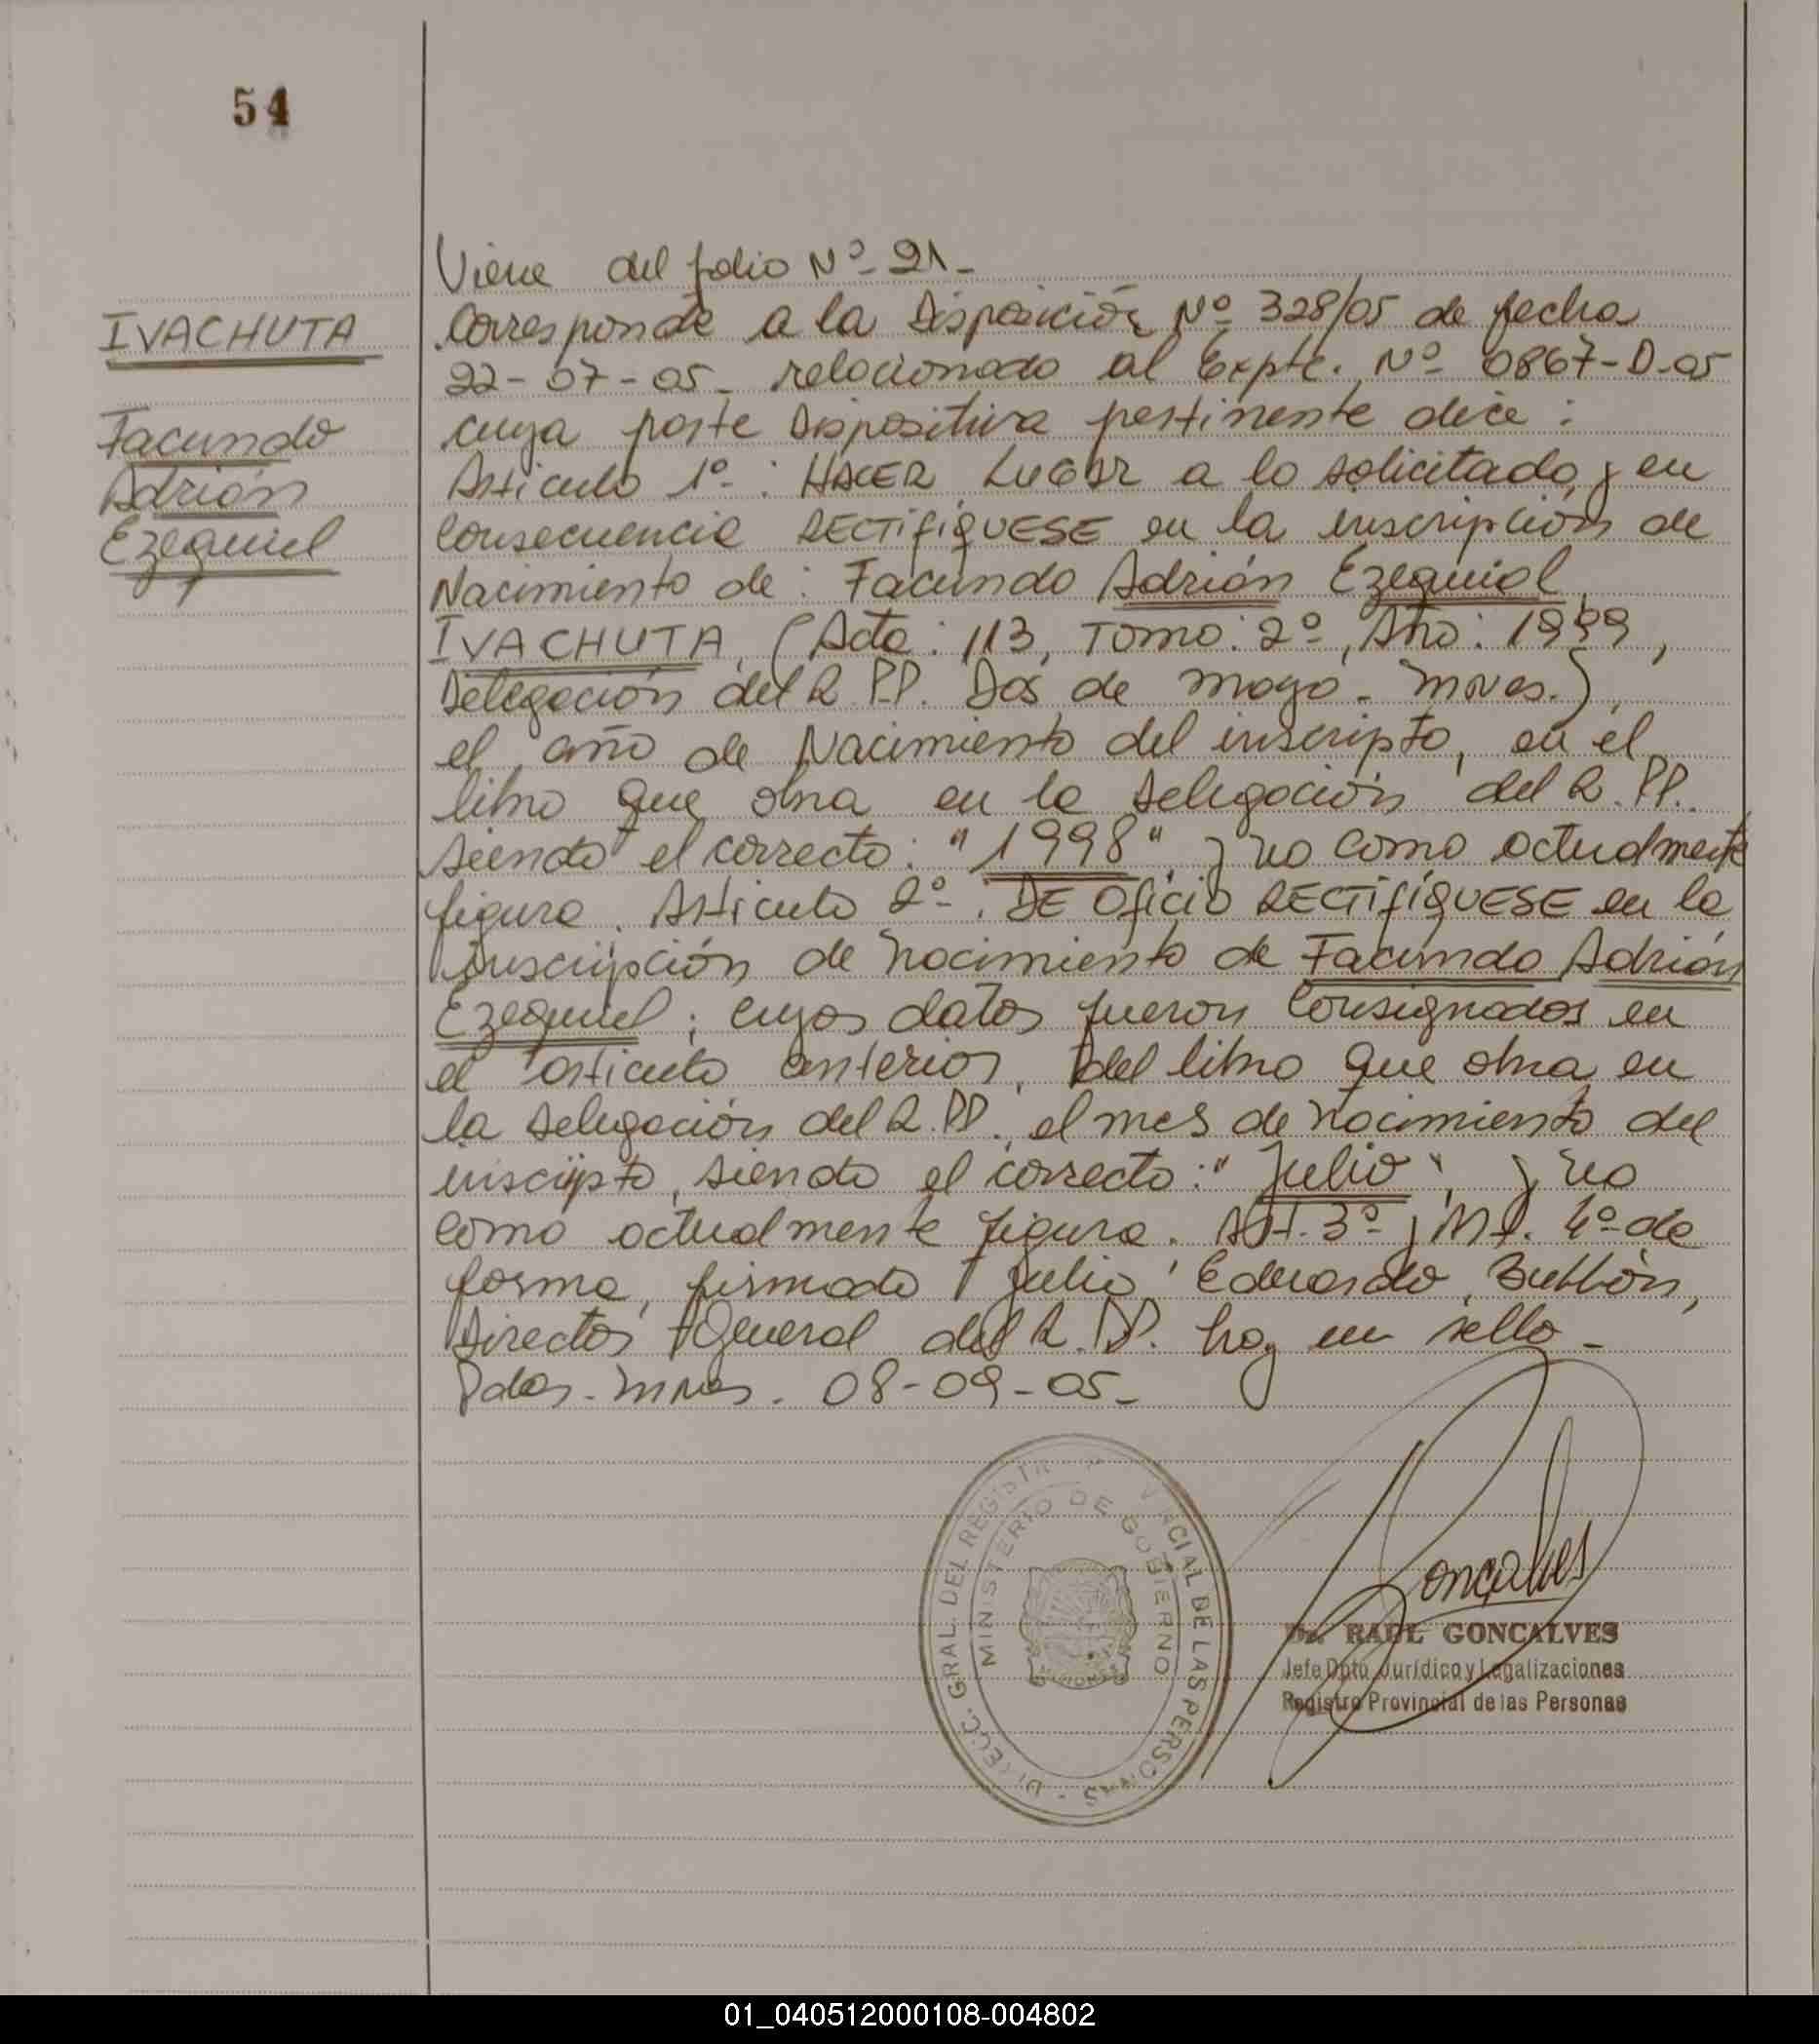 54
IVACHUTA
Facundo
Adrián
Ezequiel
Viene del folio Nº 21-
Corresponde a la Disposición Nº 328/05 de fecha
22-07-05- relacionado al Expte. Nº 0867-D-05
cuya parte Dispositiva pertinente dice:
Artículo 1º: HACER LUGAR a lo solicitado y en
Consecuencia RECTIFIQUESE en la inscripción de
Nacimiento de: Facundo Adrián Ezequiel
IVACHUTA, (Acta: 113, Tomo: 2º, Año: 1999,
Delegación del R.P.P. Dos de mayo - Mnes.),
el año de Nacimiento del inscripto, en el
libro que obra en la Delegación del R.P.P.
siendo el correcto: "1998", y no como actualmente
figura. Artículo 2º: DE Oficio RECTIFIQUESE en la
inscripción de nacimiento de Facundo Adrián
Ezequiel; cuyos datos fueron Consignados en
el artículo anterior, del libro que obra en
la Delegación del R.P.P., el mes de nacimiento del
inscripto, siendo el correcto: "Julio", y no
como actualmente figura. Art. 3º y Art. 4º de
forma, firmado Julio Eduardo
Director General del R.P.P. hay un sello-
Pdas. Mnes. 08-09-05-
DIRECC. GRAL. DEL REGISTRO PROVINCIAL DE LAS PERSONAS -
MINISTERIO DE GOBIERNO
MISIONES
Goncalves
Dr. RAUL GONCALVES
Jefe Dpto. Jurídico y Legalizaciones
Registro Provincial de las Personas
01_040512000108-004802